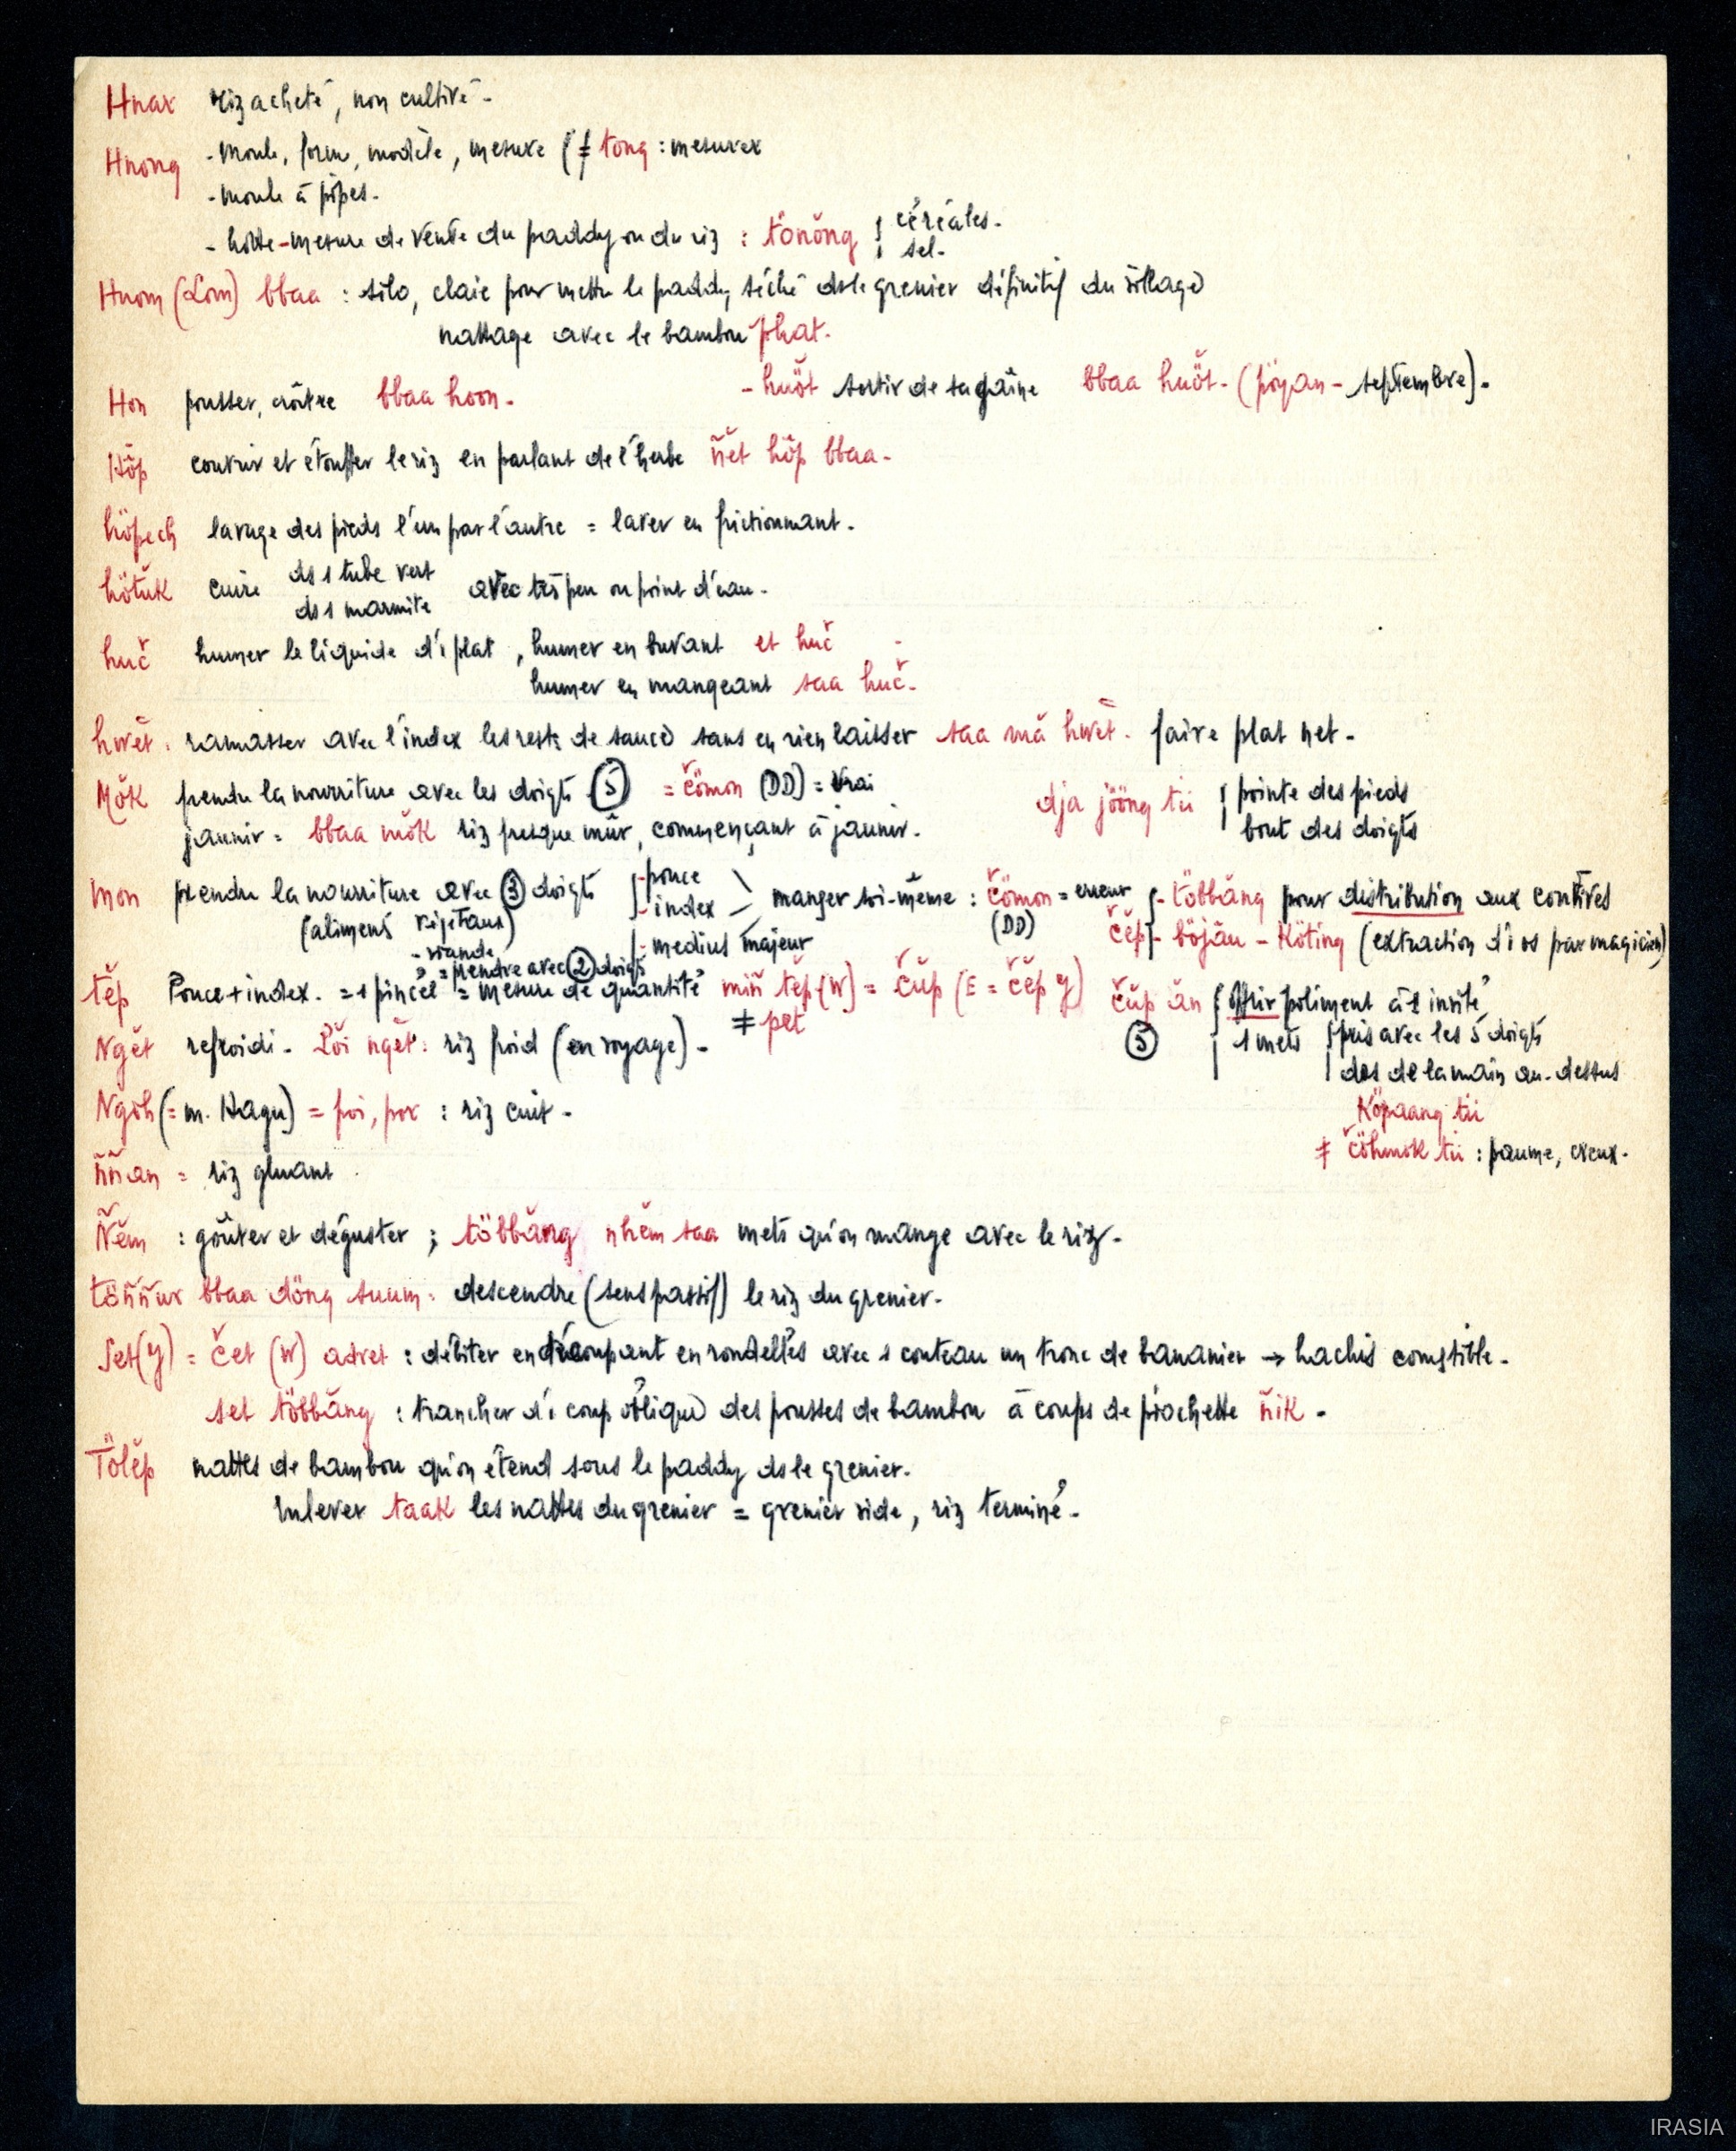 Hnar riz acheté, non cultivé -
Hnong - moule, forme, modèle, mesure (≠ tong : mesurer
- moule à pipes -
- hotte-mesure de vente du paddy ou du riz : tönŏng { céréales - sel -
Hnom (Lom) bbaa : silo, claie pour mettre le paddy séché ds le grenier définitif du village
nattage avec le bambou phat -
Hon pousser, croître bbaa hoon - - huŏt sortir de sa gaîne bbaa huŏt - (pöyan - septembre) -
Hŏp couvrir et étouffer le riz en parlant de l'herbe ñet hŏp bbaa -
höpech lavage des pieds l'un par l'autre = laver en frictionnant -
hötŭk cuire ds 1 tube vert ds 1 marmite avec très peu ou point d'eau -
huč humer le liquide d'1 plat, humer en buvant et huč -
humer en mangeant saa huč -
hwĕt : ramasser avec l'index les restes de sauce sans en rien laisser saa mă hwĕt - faire plat net -
Mŏk prendre la nourriture avec les doigts (5) = čömon (DD) = vrai dja jööng tii { pointe des pieds
jaunir = bbaa mŏk riz presque mûr, commençant à jaunir - bout des doigts
mon prendre la nourriture avec (3) doigts { - pouce - index - medius majeur manger soi-même : čömon = erreur (DD) čĕp { - többăng pour distribution aux convives
(aliments végétaux) - viande - böjău - Köting (extraction d'1 os par magicien)
= prendre avec (2) doigts
tĕp Pouce + index - = 1 pincée = mesure de quantité miñ tĕp (W) = čŭp (E = čĕp Y) čŭp ăn (5) { offrir poliment à 1 invité
≠ pet
Ngĕt refroidi - Pŏi ngĕt : riz froid (en voyage) - 1 mets { pris avec les 5 doigts
dos de la main au-dessus
Ngŏh (= m. Hagu) = poi, por : riz cuit - Köpaang tii
≠ čöhmŏk tii : paume, creux -
ññan = riz gluant
Ñĕm : goûter et déguster ; többăng nhĕm saa mets qu'on mange avec le riz -
töññur bbaa döng suum : descendre (sens passif) le riz du grenier -
Set (Y) = čet (W) adret : débiter en découpant en rondelles avec 1 couteau un tronc de bananier → hachis comestible -
set többăng : trancher d'1 coup oblique des pousses de bambou à coups de piochette ñik -
Tölĕp nattes de bambou qu'on étend sous le paddy ds le grenier -
Enlever taak les nattes du grenier = grenier vide, riz terminé -
IRASIA